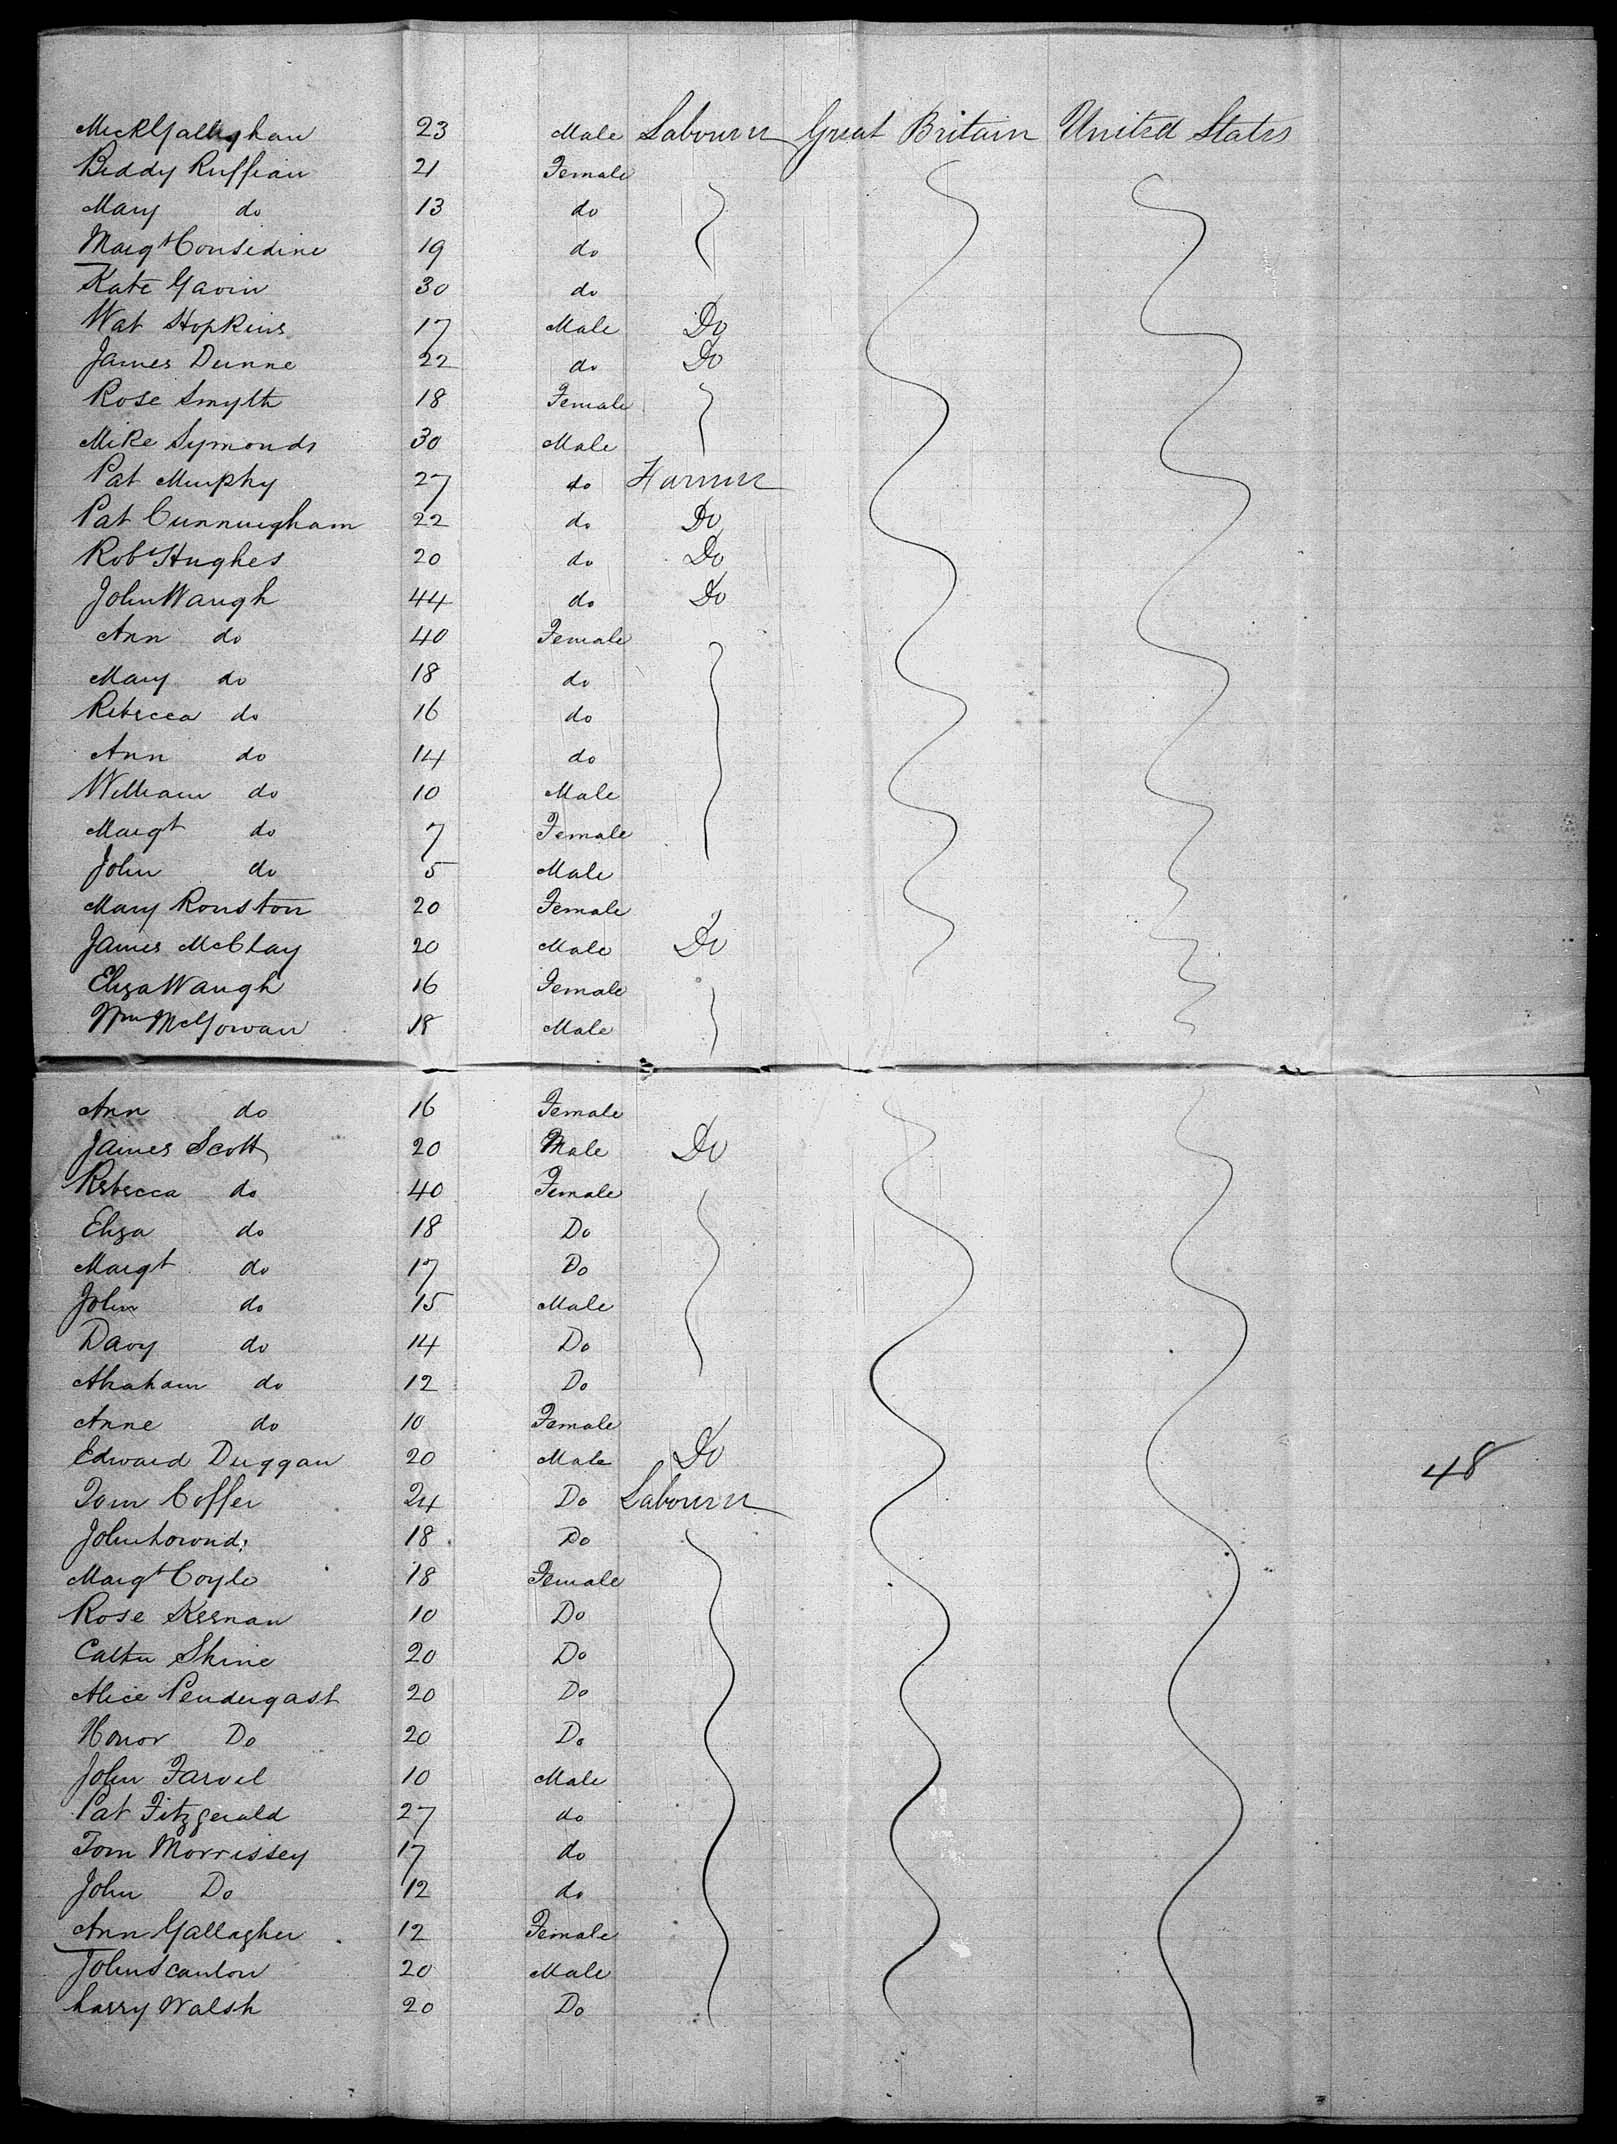 Mick Gallighan 23 Male Labourer Great Britain United States
Biddy Ruffian 21 Female
Mary do 13 do
Margt Considine 19 do
Kate Gavin 30 do
Wat Hopkins 17 Male Do
James Dunne 22 do Do
Rose Smyth 18 Female
Mike Symonds 30 Male
Pat Murphy 27 do Farmer
Pat Cunningham 22 do Do
Robt Hughes 20 do Do
John Waugh 44 do Do
Ann do 40 Female
Mary do 18 do
Rebecca do 16 do
Ann do 14 do
William do 10 Male
Margt do 7 Female
John do 5 Male
Mary Rouston 20 Female
James McClay 20 Male Do
Eliza Waugh 16 Female
Wm McGowan 18 Male
Ann do 16 Female
James Scott 20 Male Do
Rebecca do 40 Female
Eliza do 18 Do
Margt do 17 Do
John do 15 Male
Davy do 14 Do
Abraham do 12 Do
Anne do 10 Female
Edward Duggan 20 Male Do 48
Tom Coffer 24 Do Labourer
John 18 Do
Margt Coyle 18 Female
Rose Kernan 10 Do
Cathn Shine 20 Do
Alice Pendergast 20 Do
Honor Do 20 Do
John Farvel 10 Male
Pat Fitzgerald 27 do
Tom Morrissey 17 do
John Do 12 do
Ann Gallagher 12 Female
John Scanlon 20 Male
Larry Walsh 20 Do